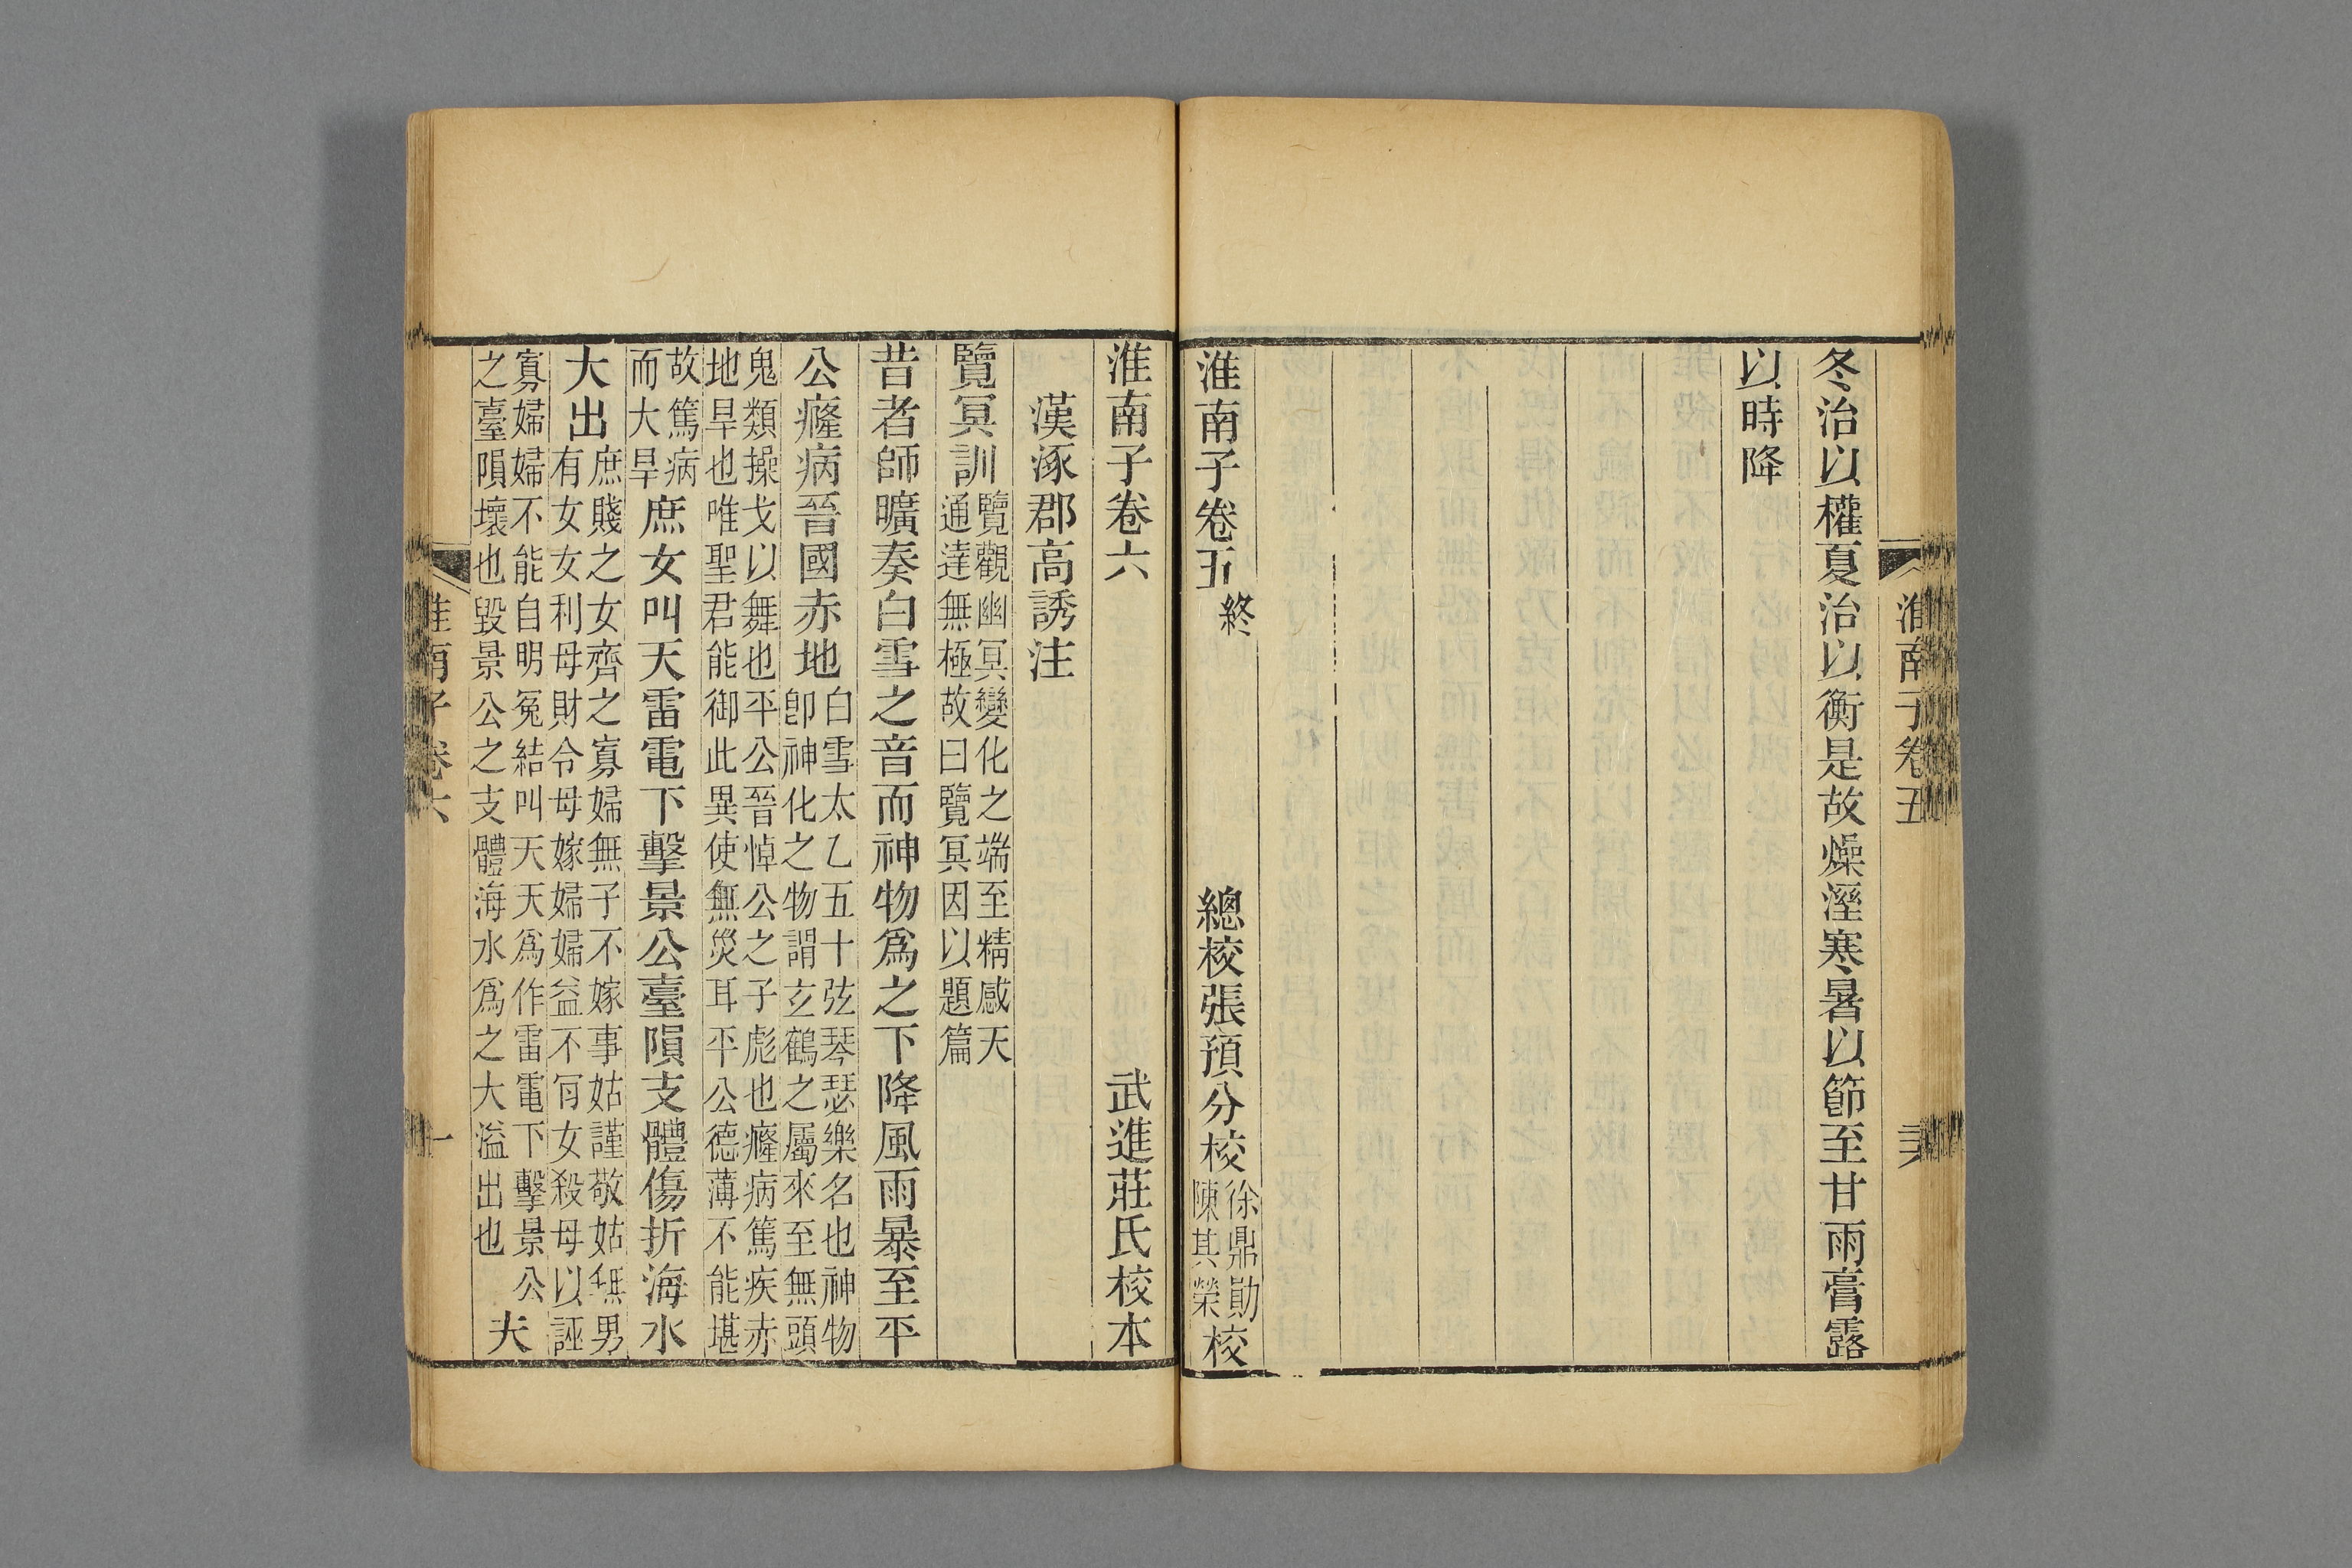 淮南子卷五
冬治以權夏治以衡是故燥溼寒暑以節至甘雨膏露
以時降
淮南子卷五終 總校張預分校徐鼎勛陳其榮校
淮南子卷六 武進莊氏校本
漢涿郡高誘注
覽冥訓覽觀幽冥變化之端至精感天
通達無極故曰覽冥因以題篇
昔者師曠奏白雪之音而神物爲之下降風雨暴至平
公癃病晉國赤地白雪太乙五十弦琴瑟樂名也神物
卽神化之物謂玄鶴之屬來至無頭
鬼類操戈以舞也平公晉悼公之子彪也癃病篤疾赤
地旱也唯聖君能御此異使無災耳平公德薄不能堪
故篤病
而大旱庶女叫天雷電下擊景公臺隕支體傷折海水
大出庶賤之女齊之寡婦無子不嫁事姑謹敬姑無男
有女女利母財令母嫁婦婦益不肎女殺母以誣
寡婦婦不能自明冤結叫天天爲作雷電下擊景公
之臺隕壞也毀景公之支體海水爲之大溢出也夫
淮南子卷六 一